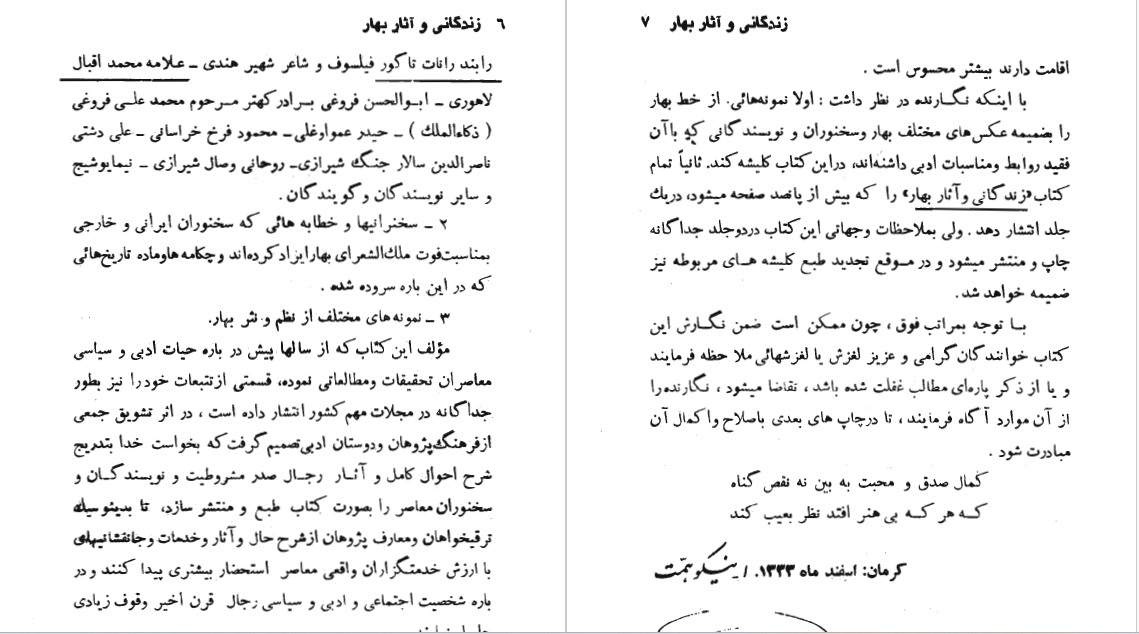 ٦ زندگانی و آثار بهار
رابند رانات تاگور فیلسوف و شاعر شهیر هندی ـ علامه محمد اقبال
لاهوری ـ ابوالحسن فروغی برادر کهتر مرحوم محمد علی فروغی
( ذکاءالملك ) ـ حیدر عمواوغلی ـ محمود فرخ خراسانی ـ علی دشتی
ناصرالدین سالار جنگ شیرازی ـ روحانی وصال شیرازی ـ نیمایوشیج
و سایر نویسندگان و گویندگان .
۲ ـ سخنرانیها و خطابه هائی که سخنوران ایرانی و خارجی
بمناسبت فوت ملك الشعرای بهار ایراد کرده اند و چکامه ها و ماده تاریخ هائی
که در این باره سروده شده .
۳ ـ نمونه های مختلف از نظم و نثر بهار.
مؤلف این کتاب که از سالها پیش در باره حیات ادبی و سیاسی
معاصران تحقیقات ومطالعاتی نموده، قسمتی از تتبعات خود را نیز بطور
جداگانه در مجلات مهم کشور انتشار داده است ، در اثر تشویق جمعی
از فرهنگ پژوهان ودوستان ادبی تصمیم گرفت که بخواست خدا بتدریج
شرح احوال کامل و آثار رجال صدر مشروطیت و نویسندگان و
سخنوران معاصر را بصورت کتاب طبع و منتشر سازد، تا بدینوسیله
ترقیخواهان ومعارف پژوهان از شرح حال و آثار وخدمات و جانفشانیهای
با ارزش خدمتگزاران واقعی معاصر استحضار بیشتری پیدا کنند و در
باره شخصیت اجتماعی و ادبی و سیاسی رجال قرن اخیر وقوف زیادی
زندگانی و آثار بهار ۷
اقامت دارند بیشتر محسوس است .
با اینکه نگارنده در نظر داشت : اولا نمونه هائی. از خط بهار
را بضمیمه عکس های مختلف بهار وسخنوران و نویسندگانی که با آن
فقید روابط ومناسبات ادبی داشته اند، در این کتاب کلیشه کند. ثانیاً تمام
کتاب «زندگانی و آثار بهار» را که بیش از پانصد صفحه میشود، دریك
جلد انتشار دهد . ولی بملاحظات وجهاتی این کتاب دردو جلد جداگانه
چاپ و منتشر میشود و در موقع تجدید طبع کلیشه های مربوطه نیز
ضمیمه خواهد شد.
با توجه بمراتب فوق ، چون ممکن است ضمن نگارش این
کتاب خوانندگان گرامی و عزیز لغزش یا لغزشهائی ملاحظه فرمایند
و یا از ذکر پاره ای مطالب غفلت شده باشد ، تقاضا میشود ، نگارنده را
از آن موارد آگاه فرمایند ، تا درچاپ های بعدی باصلاح واکمال آن
مبادرت شود .
کمال صدق و محبت به بین نه نقص گناه
که هر که بی هنر افتد نظر بعیب کند
کرمان: اسفند ماه ۱۳۳۳. ا. نیکوهمت